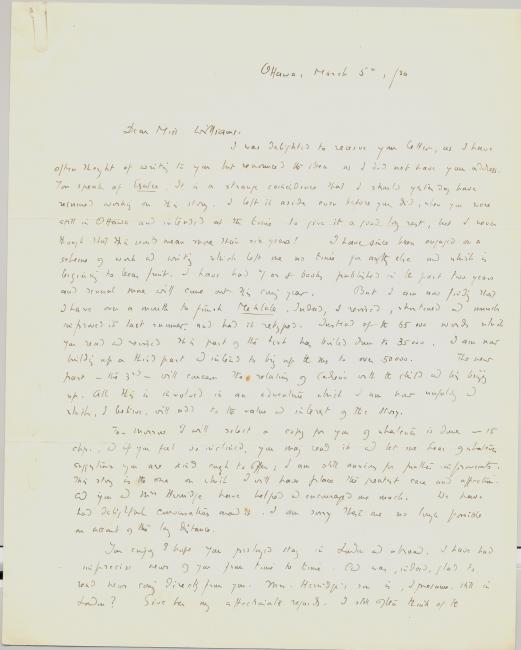 Ottawa, March 5th, /30
Dear Miss Williams.
I was delighted to receive your letter, as I have
often thought of writing to you but renounced the idea as I did not have your address.
You speak of It is a strange coincidence that I should yesterday have
resumed working on this story. I left it aside even before you did, when you were
still in Ottawa and intended at the time to give it a good long rest, but I never
though that this would mean more than six years! I have since been engaged on a
scheme of work and writing which left me no time for anything else and which is
beginning to bear fruit. I have had 7 or 8 books published in the past two years
and several more will come out this coming year. But I am now finding that
I have over a month to finish Indeed, I revised, shortened and much
improved it last summer, and had it retyped. Instead of the 65000 words which
you read and revised this part of the text has boiled down to 35000. I am now
building up a third part and intend to bring up the to over 50000. The new
part - the 3rd - will concern the relations of with the child and his bringing
up. All this is involved in an education which I am now unfolding and
which, I believe, will add to the value and interest of the story.
To morrow I will select a copy for you of whatever is done - 15
chp. and if you feel so inclined, you may read it and let me hear of whatever
suggestions you are kind enough to offer; I am still anxious for further improvements.
This story is the one on which I will have placed the greatest care and affection.
And you and Mrs have helped and encouraged me much. We have
had delightful conversations I am sorry these are no longer possible
on account of the long distance.
You enjoy I hope your prolonged stay in London and abroad. I have had
imprecise news of you from time to time. And was, indeed, glad to
read news coming directly from you. Mrs. son is, I presume, still in
London? Give her my affectionate regards. I still often think of the